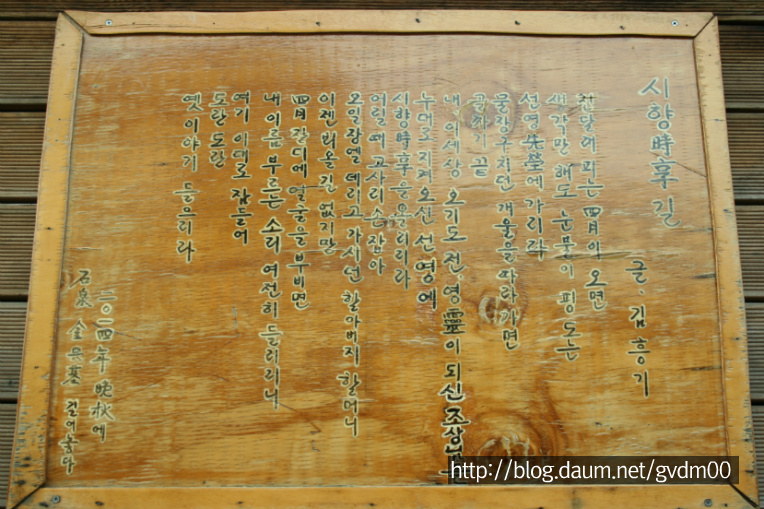 시향時享길
글. 김흥기
진달래 피는 四月이 오면
생각만 해도 눈물이 핑 도는
선영先塋에 가리라
물장구치던 개울을 따라가면
골짜기 끝
내 이세상 오기도 전, 영靈이 되신 조상님들
누대로 지켜오신 선영에
시향時享을 올리리라
어릴 때 고사리 손 잡아
오일장엘 데리고 가시던 할아버지 할머니
이젠 뵈올길 없지만
四月 잔디에 얼굴을 부비면
내 이름 부르는 소리 여전히 들리리니
여기 이대로 잠들어
도란 도란
옛 이야기 들으리라
二〇一四年 晩秋에
石泉 金 걸어놓다
http://blog.daum.net/gvdm00